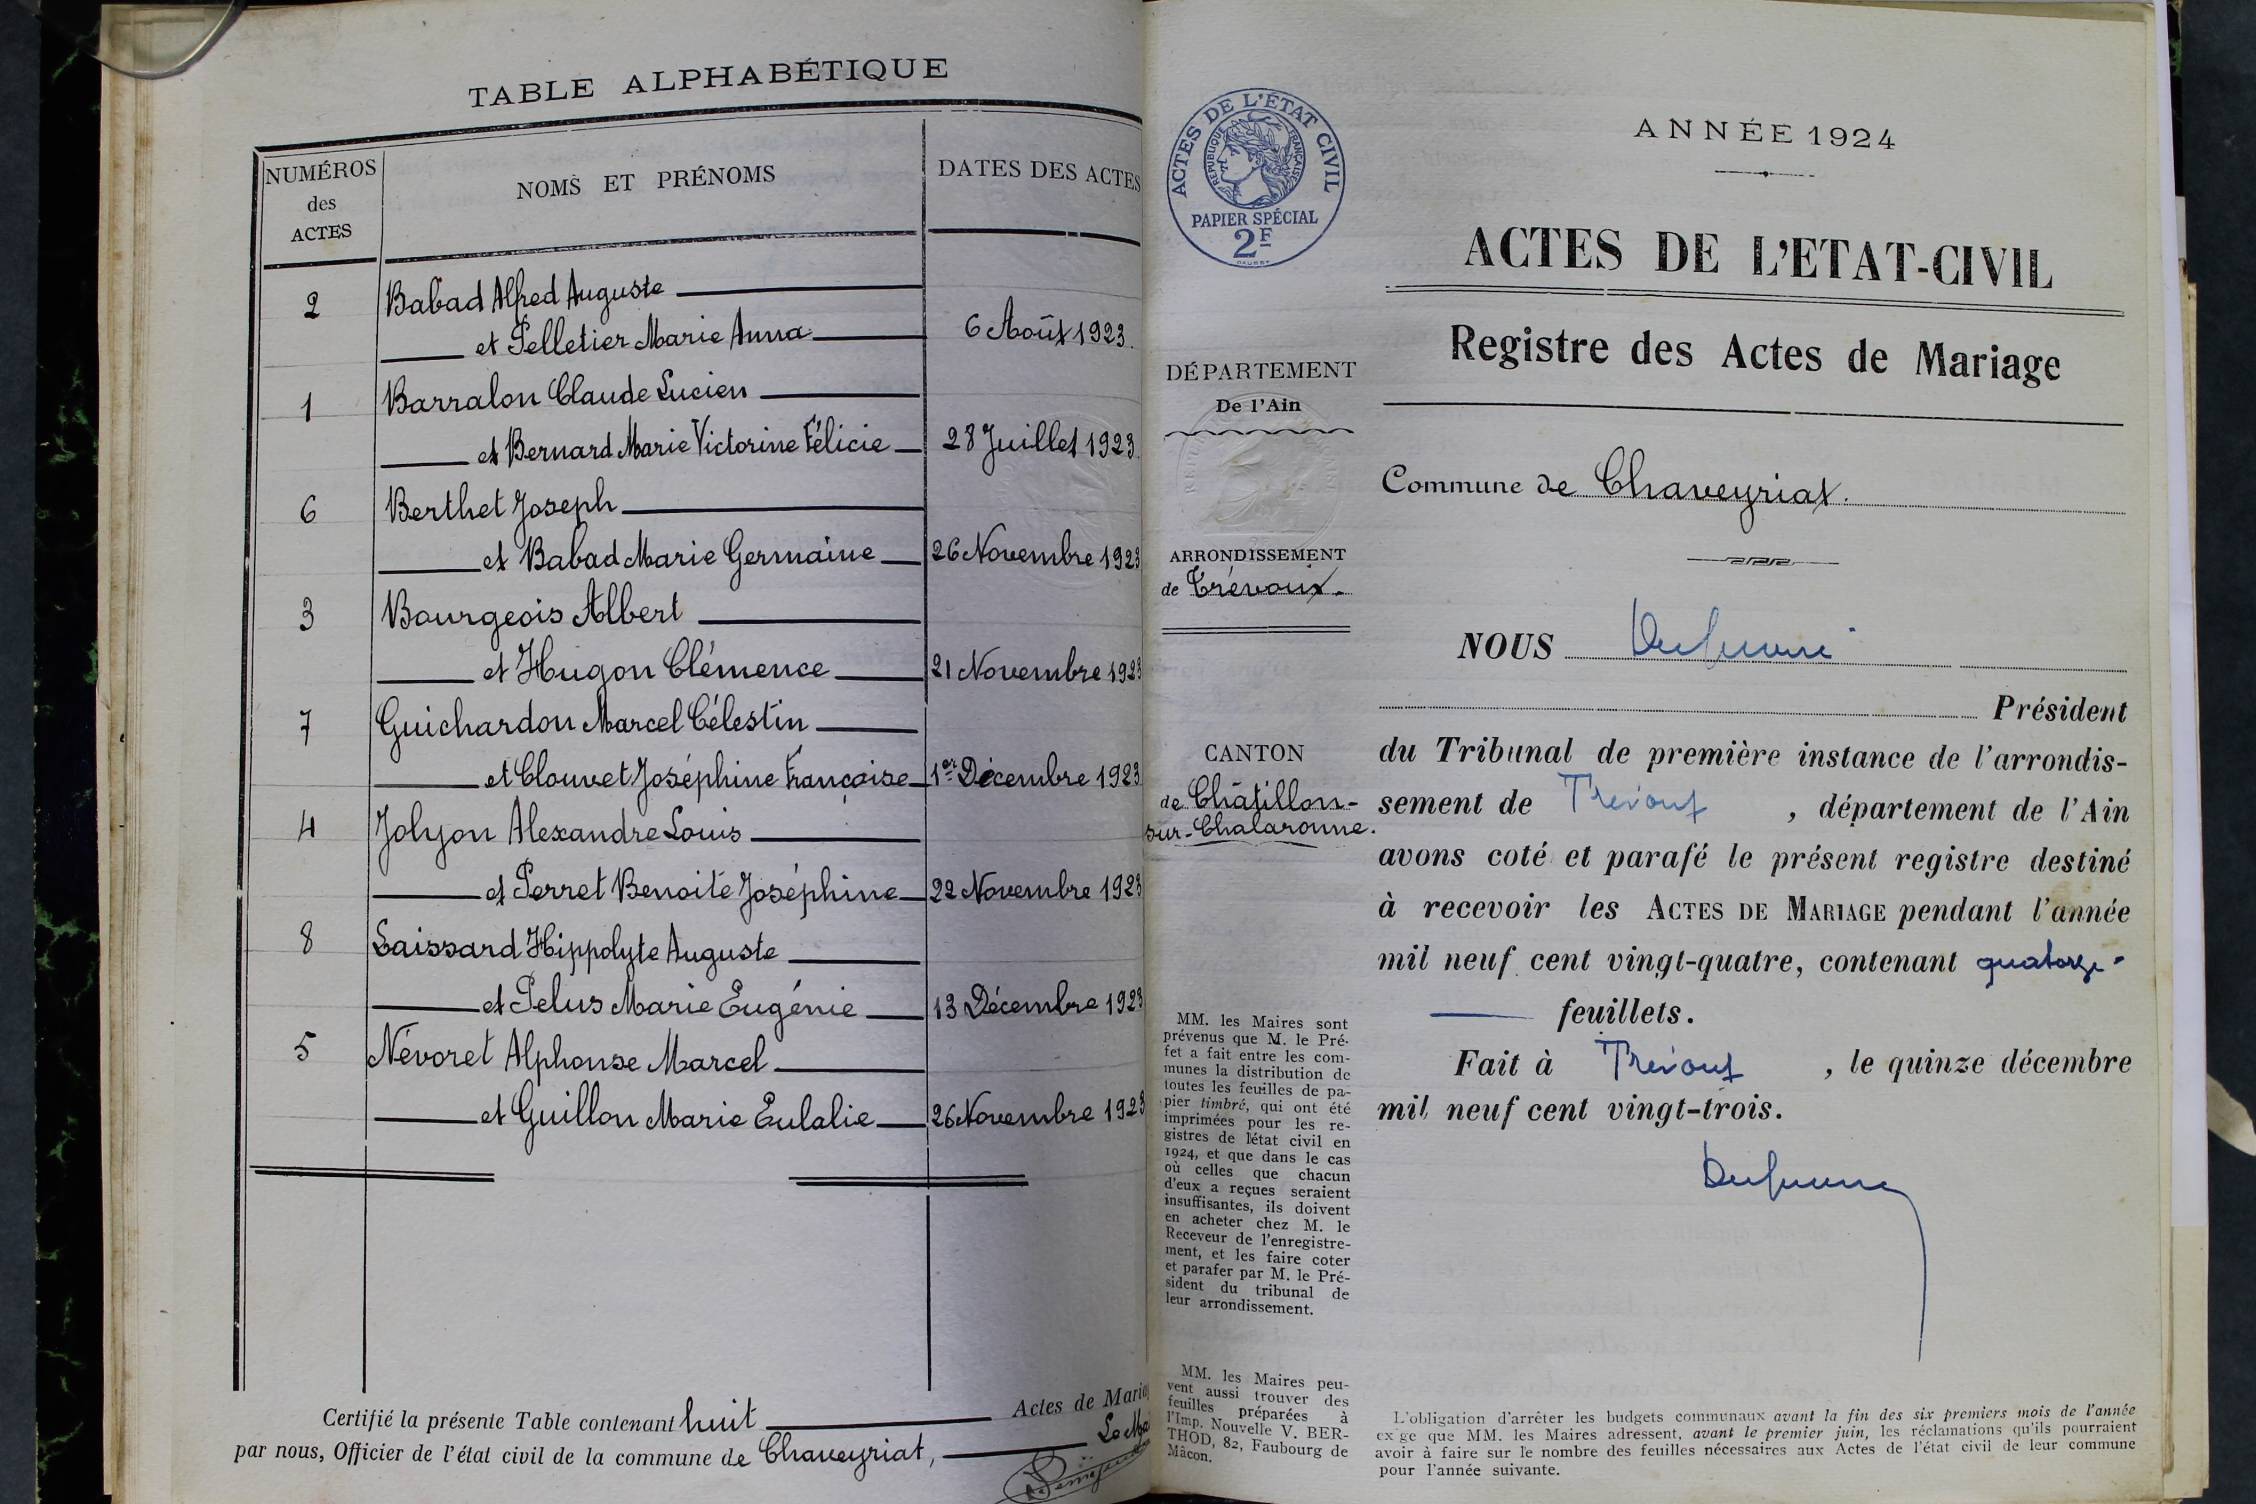 TABLE ALPHABÉTIQUE
NUMÉROS
des
ACTES
NOMS ET PRÉNOMS
DATES DES ACTES
2 Babad Alfred Auguste
et Pelletier Marie Anna 6 Août 1923.
1 Barralon Claude Lucien
et Bernard Marie Victorine Félicie 28 Juillet 1923
6 Berthet Joseph
et Babad Marie Germaine 26 Novembre 1923
3 Bourgeois Albert
et Hugon Clémence 21 Novembre 1923
7 Guichardon Marcel Célestin
et Clouvet Joséphine Françoise 1er Décembre 1923
4 Jolyon Alexandre Louis
et Perret Benoite Joséphine 22 Novembre 1923
8 Laissard Hippolyte Auguste
et Pelus Marie Eugénie 13 Décembre 1923
5 Névoret Alphonse Marcel
et Guillon Marie Eulalie 26 Novembre 1923
Certifié la présente Table contenant huit Actes de Maria
par nous, Officier de l'état civil de la commune de Chaveyriat,
ACTES DE L'ÉTAT CIVIL
RÉPUBLIQUE FRANÇAISE
PAPIER SPÉCIAL
2F
DÉPARTEMENT
De l'Ain
ARRONDISSEMENT
de Trévoux.
CANTON
de Châtillon-
sur-Chalaronne.
MM. les Maires sont
prévenus que M. le Pré-
fet a fait entre les com-
munes la distribution de
toutes les feuilles de pa-
pier timbré, qui ont été
imprimées pour les re-
gistres de l'état civil en
1924, et que dans le cas
où celles que chacun
d'eux a reçues seraient
insuffisantes, ils doivent
en acheter chez M. le
Receveur de l'enregistre-
ment, et les faire coter
et parafer par M. le Pré-
sident du tribunal de
leur arrondissement.
MM. les Maires peu-
vent aussi trouver des
feuilles préparées à
l'Imp. Nouvelle V. BER-
THOD, 82, Faubourg de
Mâcon.
ANNÉE 1924
ACTES DE L'ETAT-CIVIL
Registre des Actes de Mariage
Commune de Chaveyriat.
NOUS
Président
du Tribunal de première instance de l'arrondis-
sement de Trévoux, département de l'Ain
avons coté et parafé le présent registre destiné
à recevoir les ACTES DE MARIAGE pendant l'année
mil neuf cent vingt-quatre, contenant quatorze
feuillets.
Fait à Trévoux, le quinze décembre
mil neuf cent vingt-trois.
L'obligation d'arrêter les budgets communaux avant la fin des six premiers mois de l'année
ex'ge que MM. les Maires adressent, avant le premier juin, les réclamations qu'ils pourraient
avoir à faire sur le nombre des feuilles nécessaires aux Actes de l'état civil de leur commune
pour l'année suivante.